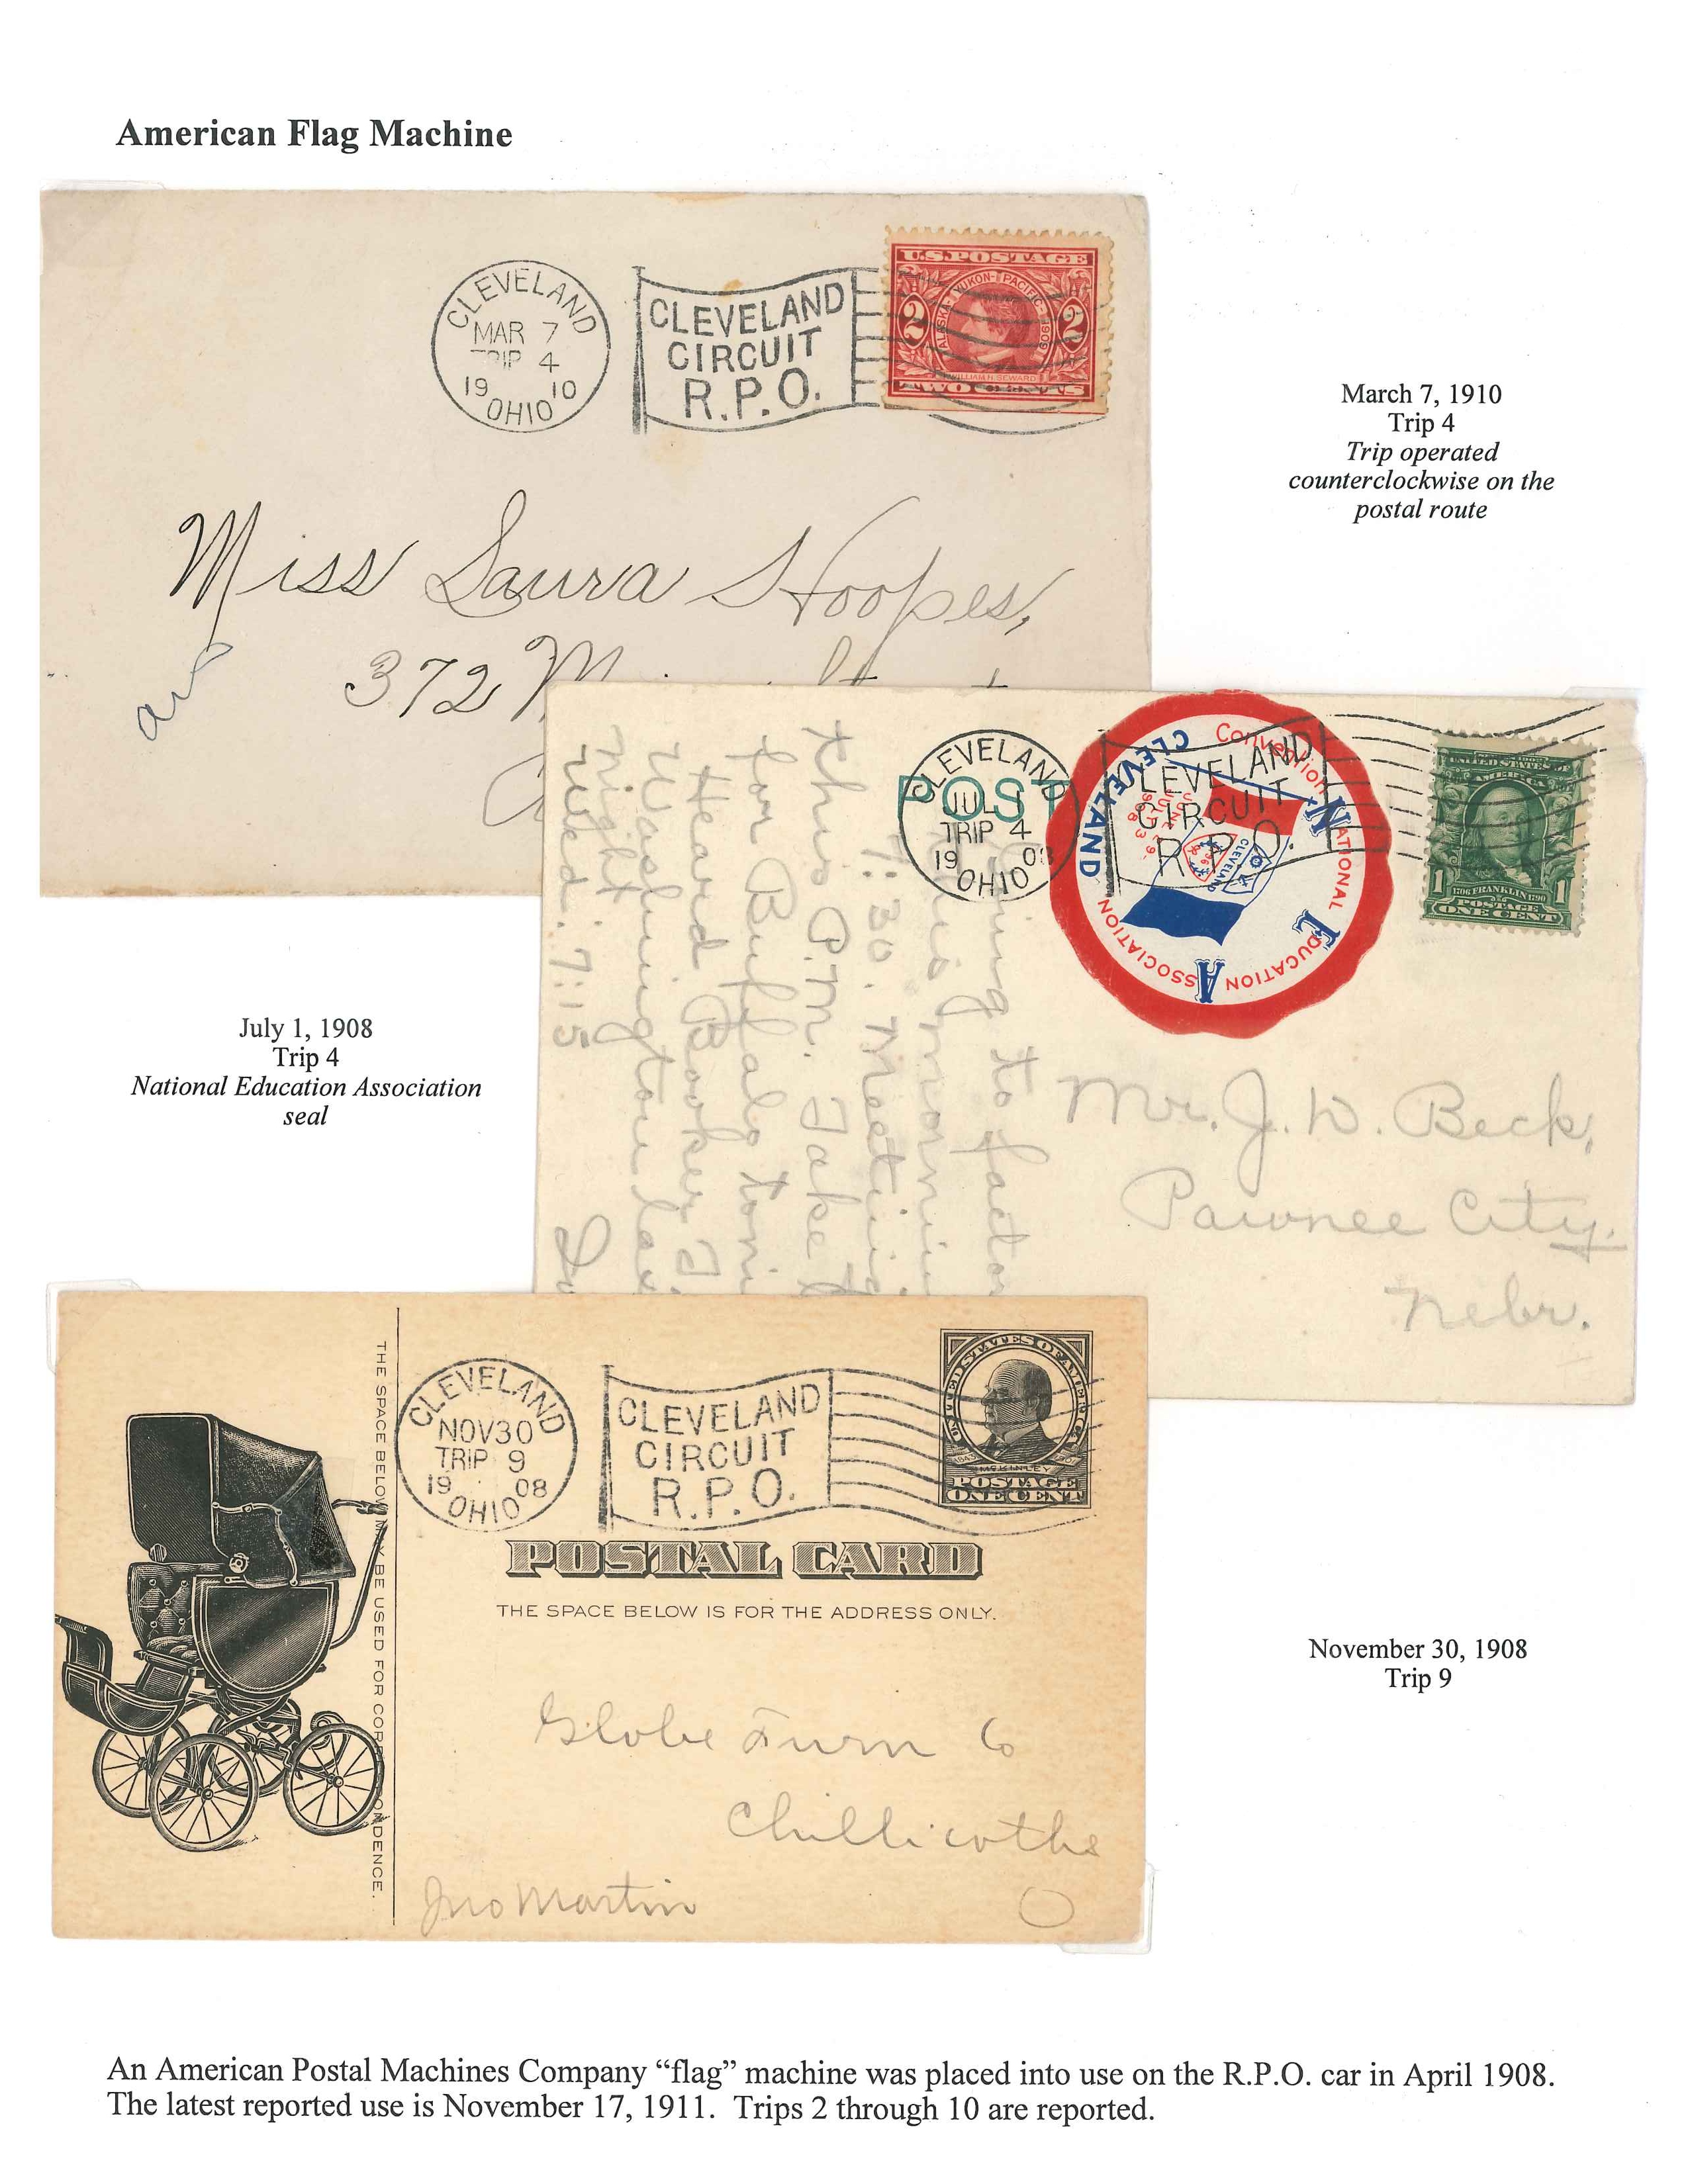 American Flag Machine
CLEVELAND
MAR 7
TRIP 4
19 10
OHIO
CLEVELAND
CIRCUIT
R.P.O.
U.S. POSTAGE
ALASKA-YUKON-PACIFIC 1909
2 2
WILLIAM H. SEWARD
TWO CENTS
Miss Laura Hoopes,
372
March 7, 1910
Trip 4
Trip operated
counterclockwise on the
postal route
POST
CLEVELAND
JUL 1
TRIP 4
19 08
OHIO
CLEVELAND
CIRCUIT
R.P.O.
Convention
CLEVELAND
NATIONAL
EDUCATION
ASSOCIATION
JUNE 29-
JULY 3
CLEVELAND
UNITED STATES OF
AMERICA
1 1
1706 FRANKLIN 1790
POSTAGE
ONE CENT
to factor
this mornin
7:30. Meeting
this P.M. Take
for Buffalo toni
Heard Booker T.
Washington las
night
Wed. 7:15
Mr. J. W. Beck,
Pawnee City.
Nebr.
July 1, 1908
Trip 4
National Education Association
seal
THE SPACE BELOW MAY BE USED FOR CORRESPONDENCE.
CLEVELAND
NOV 30
TRIP 9
19 08
OHIO
CLEVELAND
CIRCUIT
R.P.O.
UNITED STATES OF AMERICA
1843 McKINLEY 1901
POSTAGE
ONE CENT
POSTAL CARD
THE SPACE BELOW IS FOR THE ADDRESS ONLY.
Globe Furn Co
Chillicothe
O
Jno Martin
November 30, 1908
Trip 9
An American Postal Machines Company “flag” machine was placed into use on the R.P.O. car in April 1908.
The latest reported use is November 17, 1911. Trips 2 through 10 are reported.